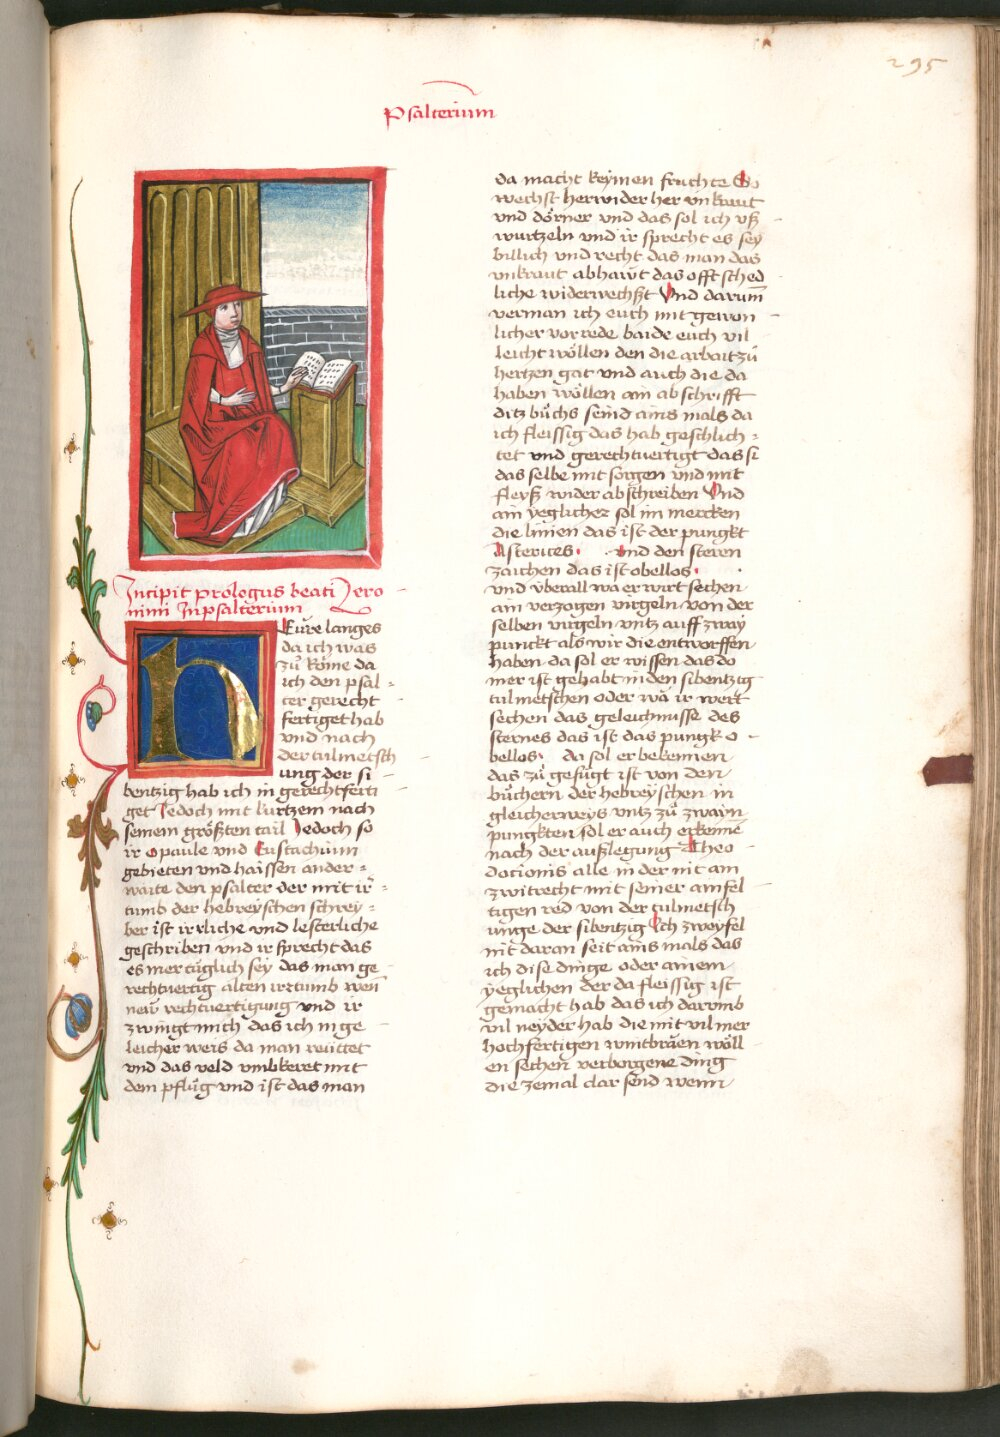 295
Psalterium
Incipit prologus beati Jero
nimi In psalterium
HEure langes
da ich was
zů Rome da
ich den psal-
ter gerecht
fertiget hab
vnd nach
der tulmetsch
ung der si
bentzig hab ich in gerechtferti
get Jedoch mit kurtzem nach
seinem größten tail Jedoch so
ir o paule vnd Eustachium
gebieten vnd haissen ander-
warte den psalter der mit ir-
tumb der hebreyschen schrey-
ber ist irrliche vnd lesterliche
geschriben vnd ir sprecht das
es mer tüglich sey das man ge
rechtuertig alten irrtumb wen
new rechtuertigung vnd ir
zwingt mich das ich in ge
leicher weis da man reüttet
vnd das veld vmbkeret mit
dem pflůg vnd ist das man
da macht keymen fruchte So
wechst herwider her vnkraut
vnd dörner vnd das sol ich vß
wurtzeln vnd ir sprecht es sey
billich vnd recht das man das
vnkraut abhawt das offt sched
liche widerwechßt Vnd darum̄
verman ich euch mit gewon
licher vorrede baide euch vil
leicht wöllen den die arbait zů
hertzen gat vnd auch die da
haben wöllen ain abschrifft
ditz bůchs seind ains mals da
ich fleissig das hab geschlich-
tet vnd gerechtuertigt das si
das selbe mit sorgen vnd mit
fleyß wider abschreiben Vnd
ain yeglicher sol im mercken
die linien das ist der pungkt
Asterices. vnd den steren
zaichen das ist obellos.
vnd überall wa er wirt sechen
ain verzogen virgeln von der
selben virgeln vntz auff zway
punckt als wir die entworffen
haben da sol er wissen das do
mer ist gehabt in den sibentzig
tulmetschen oder wa ir wert
sechen das geleichnusse des
sternes das ist das pungk o
bellos. da sol er bekennen
das zů gefügt ist von den
bůchern der hebreyschen in
gleicherweys vntz zů zwain
pungkten sol er auch erkenne
nach der außlegung Theo
docionis alle in der nit ain
zwitrecht mit seiner ainfel
tigen red von der tulmetsch
unge der sibentzig Ich zweyfel
nit daran seit ains mals das
ich dise dinge oder ainem
yeglichen der da fleissig ist
gemacht hab das ich darumb
vil neyder hab die mit vil mer
hochfertigen wintbräen wöll
en sechen verborgene ding
die zemal clar send wenn